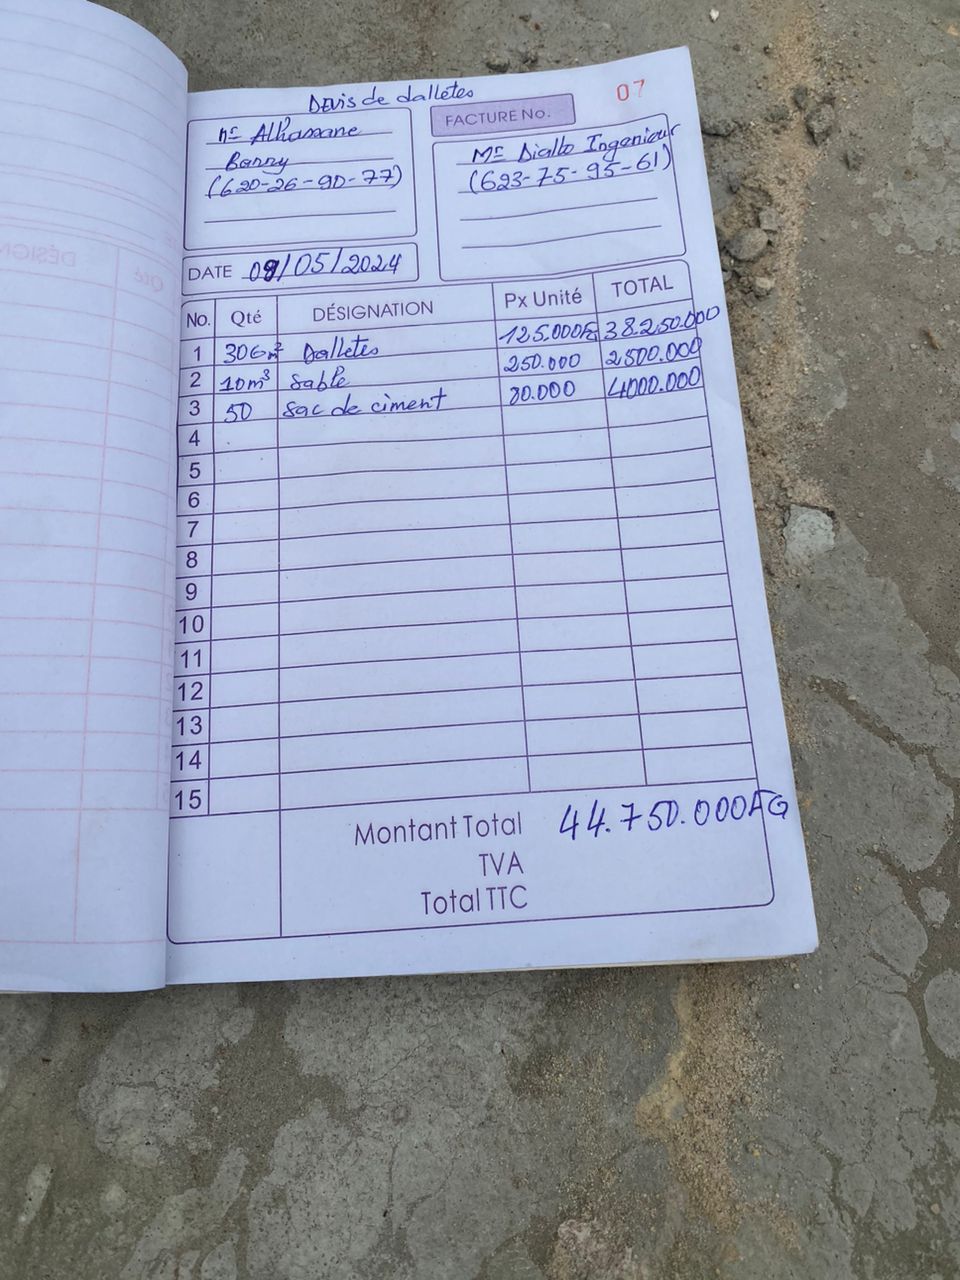 Devis de dalletes
07
Mr Alhassane
Barry
(620-26-90-77)
FACTURE No.
Mr Diallo Ingenieur
(623-75-95-61)
DATE 09/05/2024
No. Qté DÉSIGNATION Px Unité TOTAL
1 306m² Dalletes 125.000FG 38.250.000
2 10m³ Sable 250.000 2500.000
3 50 Sac de ciment 80.000 4000.000
4
5
6
7
8
9
10
11
12
13
14
15
Montant Total 44.750.000FG
TVA
Total TTC